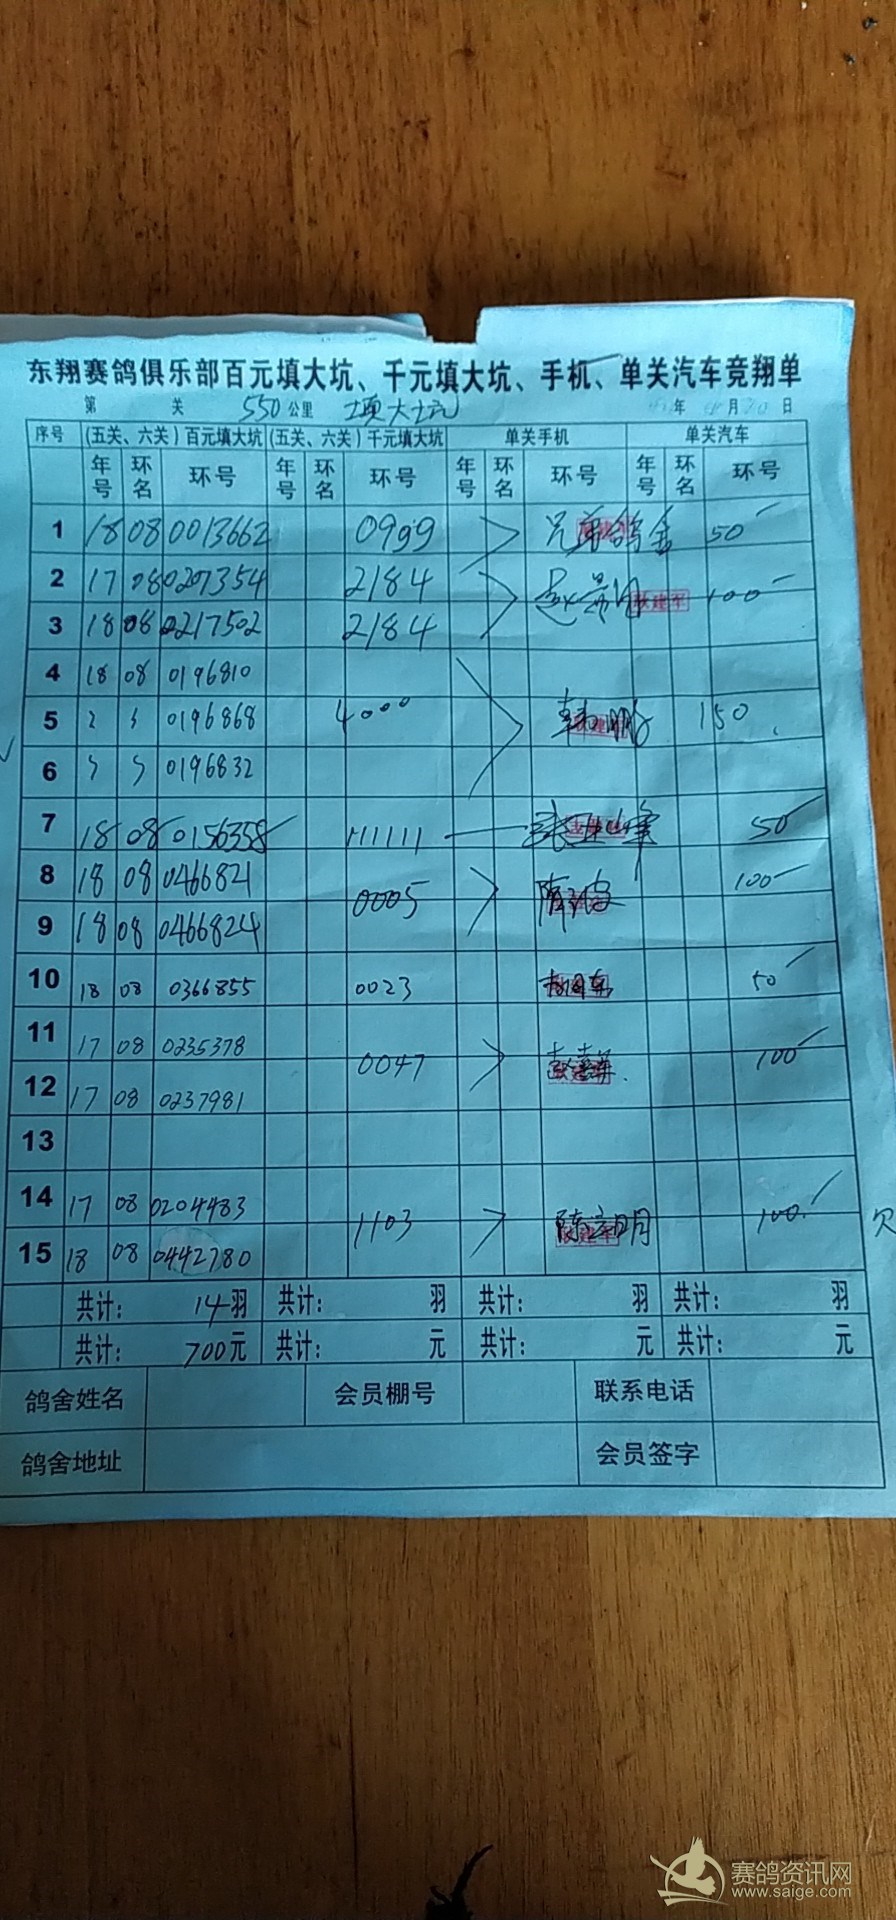 东翔赛鸽俱乐部百元填大坑、千元填大坑、手机、单关汽车竞翔单
第 关 550公里 填大坑 年 月 20 日
序号 (五关、六关)百元填大坑 (五关、六关)千元填大坑 单关手机 单关汽车
年号 环名 环号 年号 环名 环号 年号 环名 环号 年号 环名 环号
1 18 08 0013662 0999 兄弟鸽舍 50
2 17 08 0207354 2184 100
3 18 08 0217502 2184
4 18 08 0196810
5 0196868 4000 韩鹏 150
6 0196832
7 18 08 0156358 111111 50
8 18 08 0466821 0005 100
9 18 08 0466824
10 18 08 0366855 0023 50
11 17 08 0235378 0047 100
12 17 08 0237981
13
14 17 08 0204483 1103 陈立明 100 欠
15 18 08 0442780
共计: 14羽 共计: 羽 共计: 羽 共计: 羽
共计: 700元 共计: 元 共计: 元 共计: 元
鸽舍姓名 会员棚号 联系电话
鸽舍地址 会员签字
赛鸽资讯网
www.saige.com